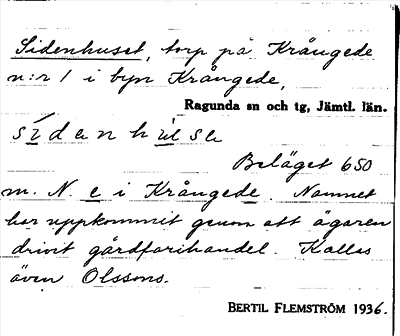 Sidenhuset, torp på Krångede
n:r 1 i byn Krångede,
Ragunda sn och tg, Jämtl. län.
sídenhùse
Beläget 650
m. N. e i Krångede. Namnet
har uppkommit genom att ägaren
drivit gårdfarihandel. Kallas
även Olssons.
BERTIL FLEMSTRÖM 1936.